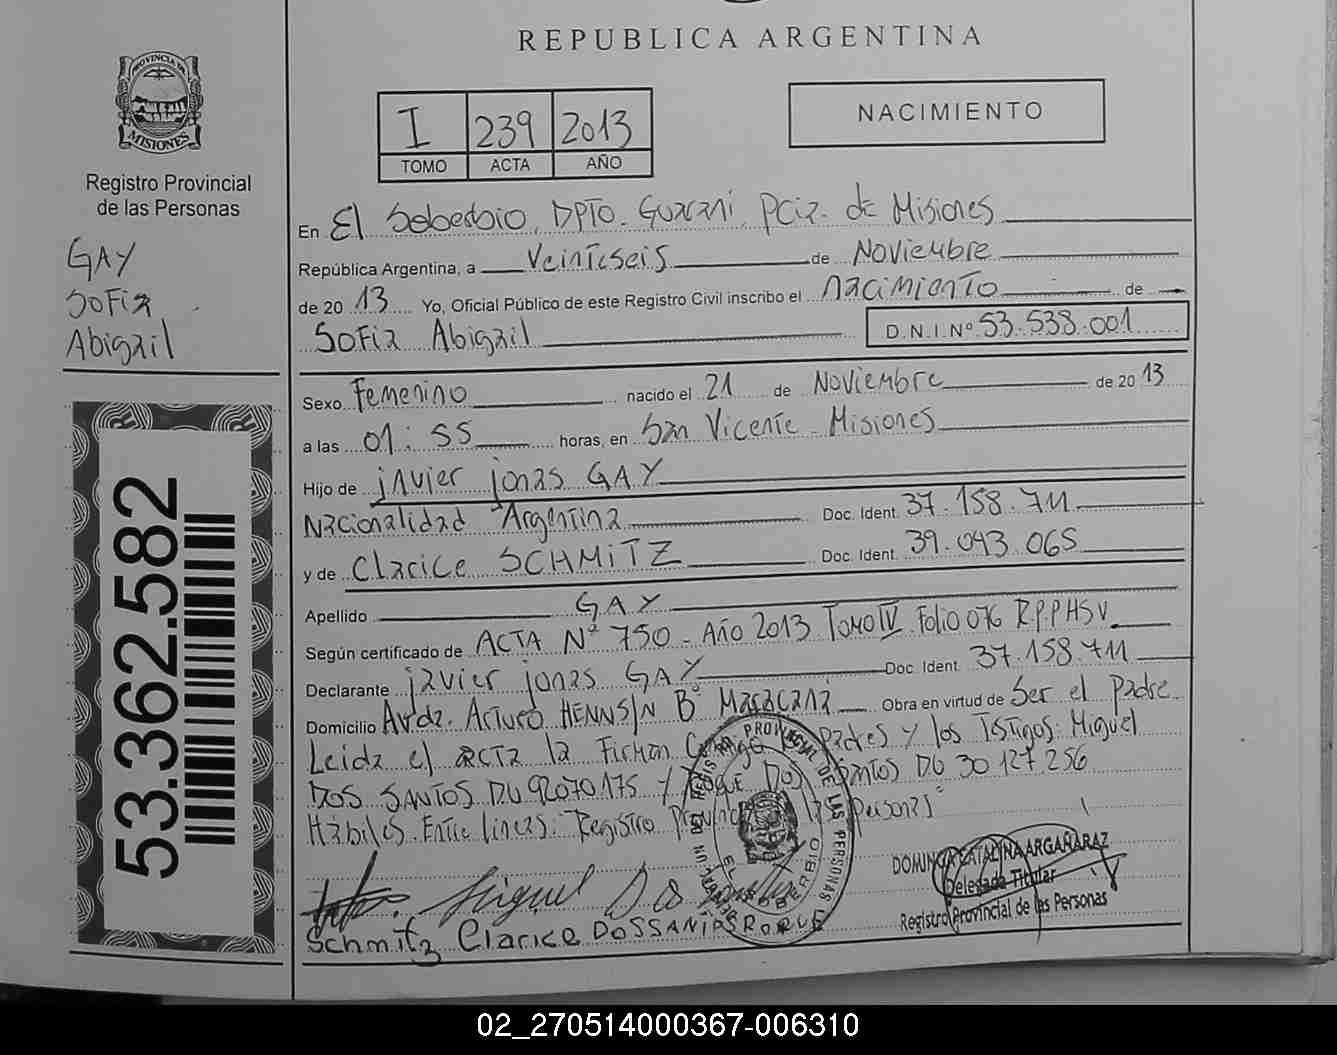 REPUBLICA ARGENTINA
PROVINCIA DE
MISIONES
Registro Provincial
de las Personas
GAY
Sofia
Abigail
53.362.582
I 239 2013
TOMO ACTA AÑO
NACIMIENTO
En El Soberbio, DPTO. Guarani, Pcia. de Misiones
República Argentina, a Veinteseis de Noviembre
de 2013 Yo, Oficial Público de este Registro Civil inscribo el nacimiento de
Sofia Abigail D.N.I.Nº 53.538.001
Sexo Femenino nacido el 21 de Noviembre de 2013
a las 01:55 horas, en San Vicente - Misiones
Hijo de javier jonas GAY
Nacionalidad Argentina Doc. Ident. 37.158.711
y de Clarice SCHMITZ Doc. Ident. 39.043.065
Apellido GAY
Según certificado de ACTA Nº 750 - Año 2013 Tomo IV Folio 076 R.P.PHSV.
Declarante javier jonas GAY Doc. Ident. 37.158.711
Domicilio Avda. Arturo HENN S/N Bº Maracaná Obra en virtud de Ser el padre
Leida el acta la Firman Conmigo los Padres y los Testigos: Miguel
DOS SANTOS DU 92070175 y Roque DOS SANTOS DU 30 127.256
Hábiles. Entre lineas: "Registro Provincial de las personas"
Miguel Dos
Schmitz Clarice DOSSANTOS ROQUE
PROVINCIAL DE LAS PERSONAS
EL SOBERBIO
DOMINGA CATALINA ARGAÑARAZ
Delegada Titular
Registro Provincial de las Personas
02_270514000367-006310